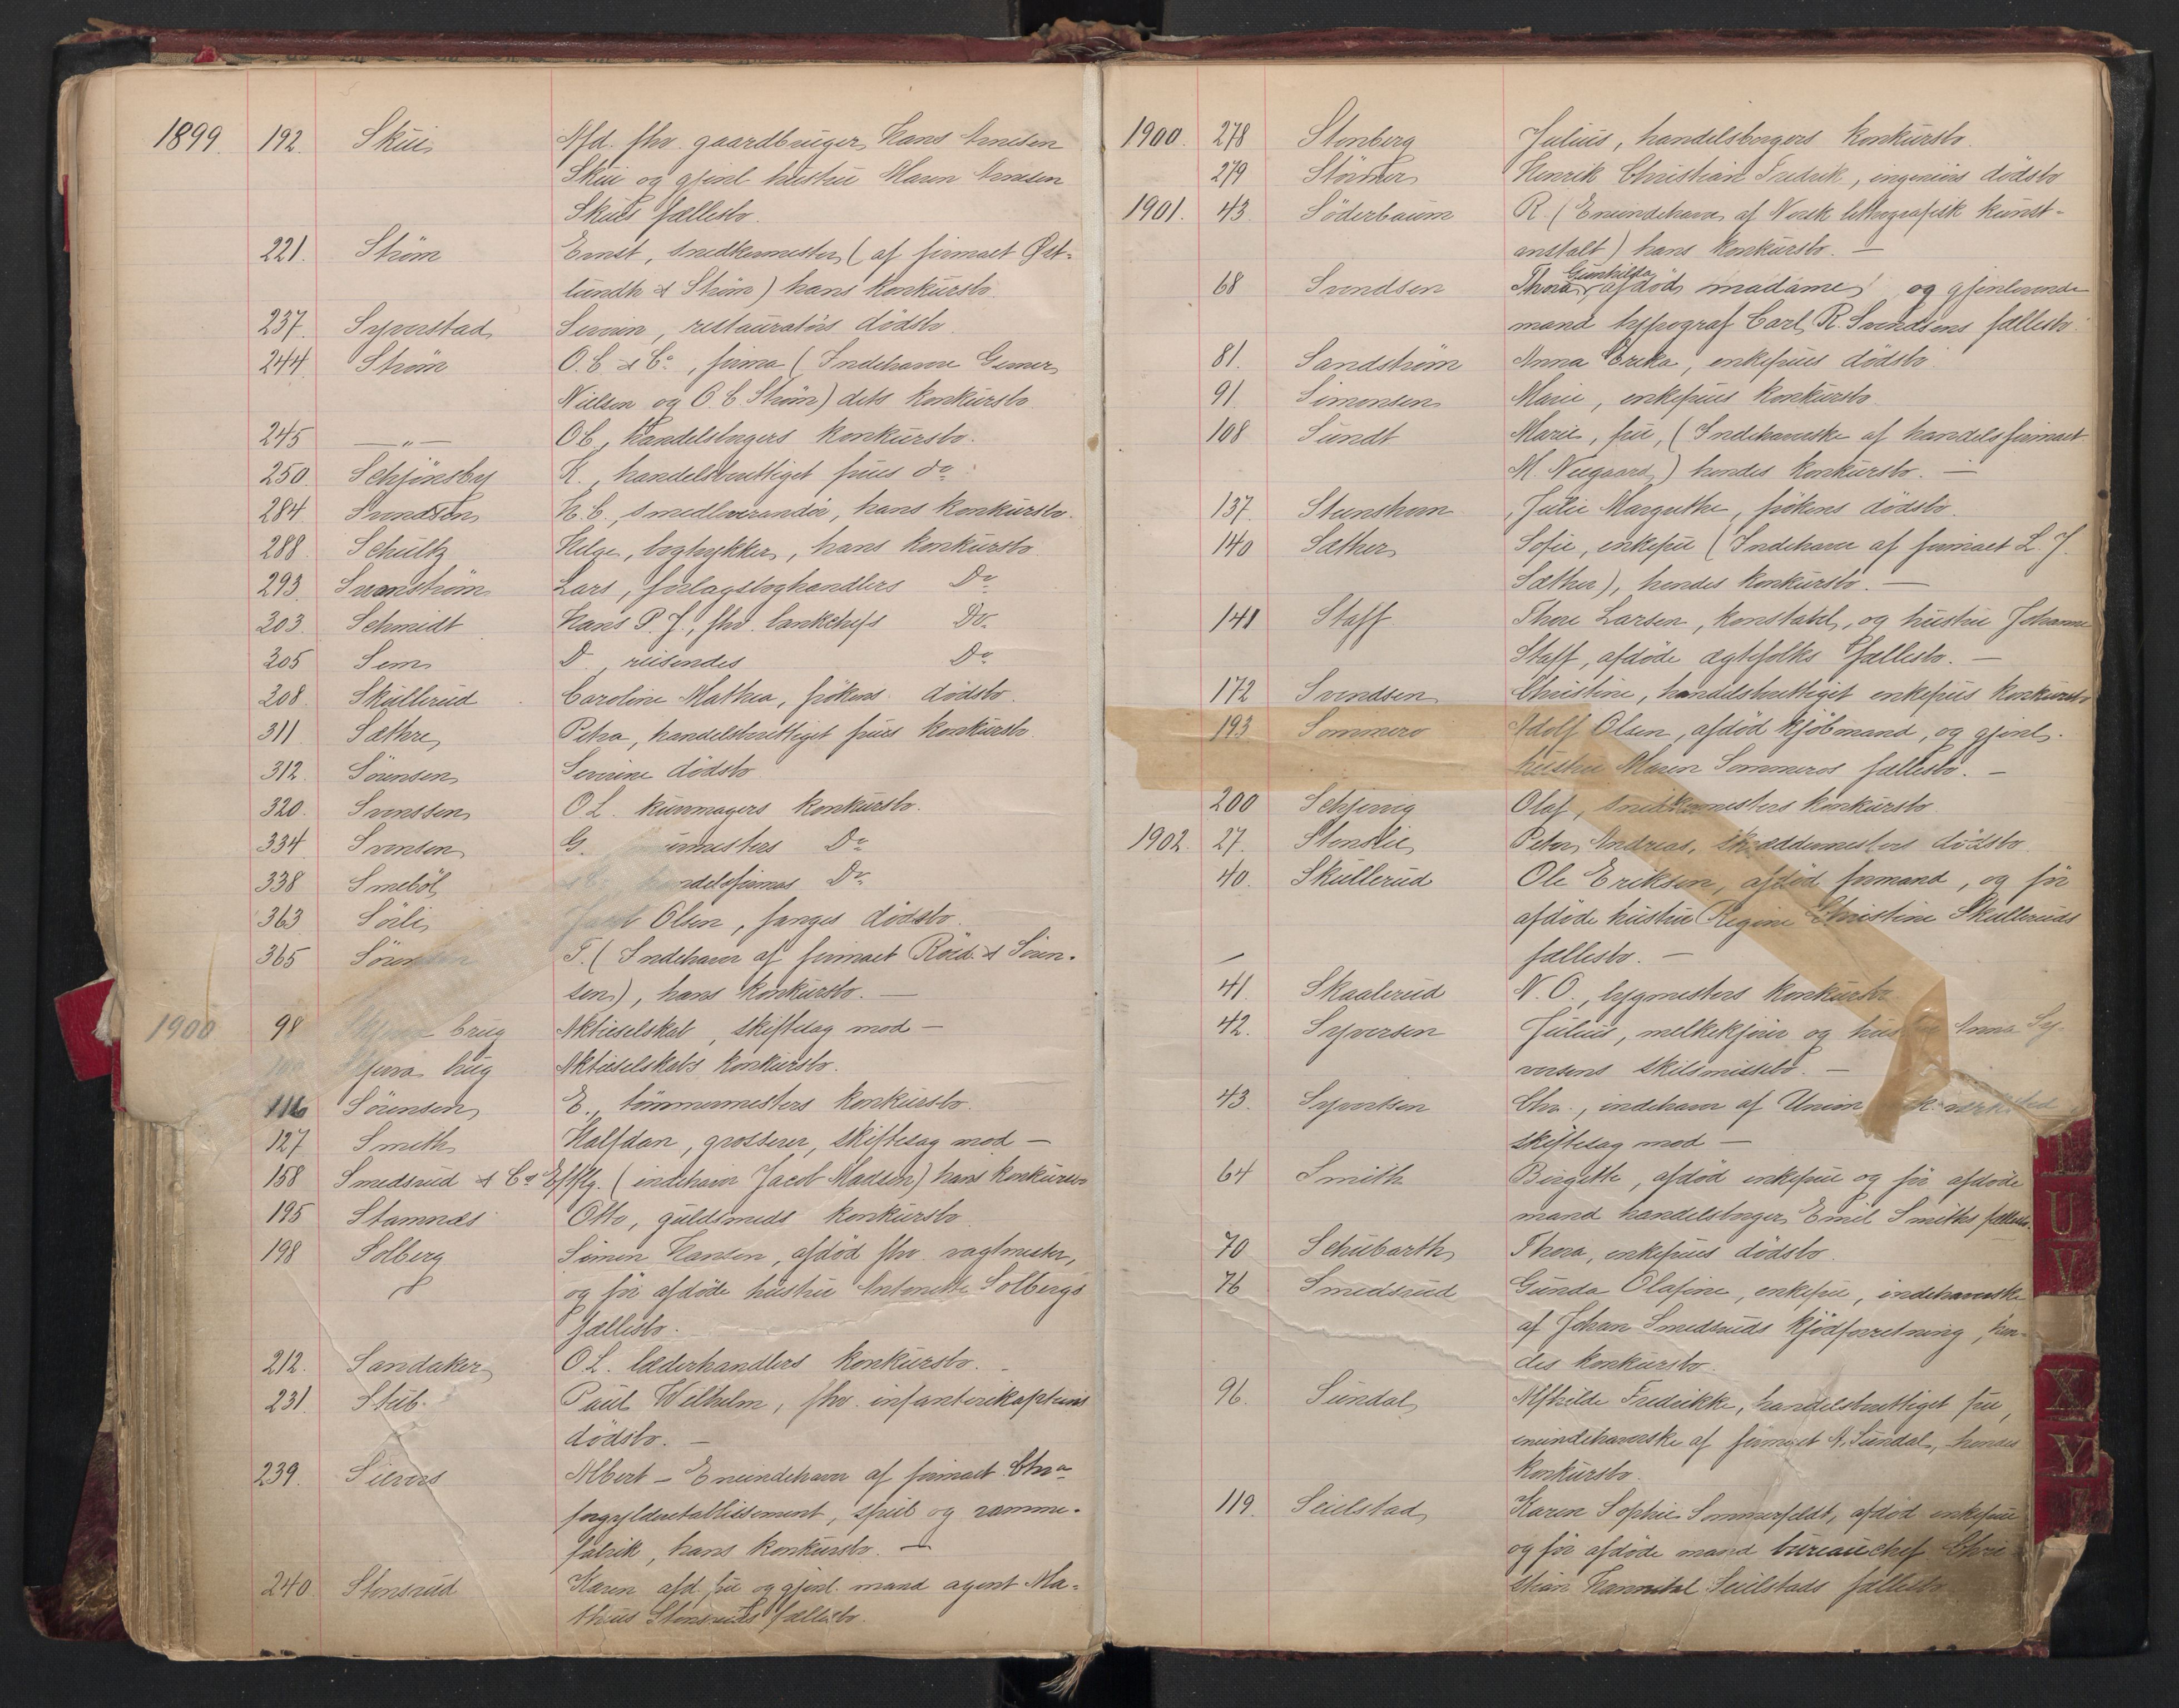 1899. 192. Skui, Afd. fhv. gaardbruger, Hans Arnesen
Skui og gjenl. hustru Maren Arnesen
Skuis fællesbo.
221. Strøm Ernst, snedkermester, (af firmaet Øst-
lundh & Strøm) hans konkursbo.
237. Syverstad, Severin, restauratørs dødsbo.
244 Strøm O. C. & Co., firma (Indehavere Gerner
Nielsen og O. C. Strøm) dets konkursbo.
245 — „ — O C, handelsborgers konkursbo.
250 Schjønsby K., handelsberettiget frues do.
284 Svendsen, H. C., smedleverandør, hans konkursbo.
288 Schultz Helge, bogtrykker, hans konkursbo
293. Svanstrøm Lars, forlagsboghandlers Do
303. Schmidt Hans P. J., fhv. bankchefs Do.
305 Sem, D., reisendes Do
308. Skullerud Caroline Mathea, frøkens dødsbo.
311 Sæthre, Petra, handelsberettiget frues konkursbo.
312. Sørensen, Severine dødsbo.
320. Svenssen, O L. kurvmagers konkursbo.
334 Svensen, G. Do
338 Smebøl, handelsfirmas Do
363 Sørli, Olsen, fanges dødsbo.
365 Sørensen T. (Indehaver af firmaet Røed & Søren-
sen), hans konkursbo. —
1900 98 brug Aktieselskab, skiftesag mod —
brug Aktieselskabs konkursbo.
116 Sørensen, E., tømmermesters konkursbo.
127 Smith, Halfdan, grosserer, skiftesag mod —
158 Smedsrud & Co Eftflg. (indehaver Jacob Madsen) hans konkursbo
195 Stamnæs Otto, guldsmeds konkursbo
198 Solberg Simen Hansen, afdød fhv. vagtmester,
og før afdøde hustru Antonette Solbergs
fællesbo.
212. Sandaker, O L. læderhandlers konkursbo. —
231. Stub. Paul Wilhelm, fhv. infanterikapteins
dødsbo. —
239. Sievers Albert – Eneindehaver af firmaet Chra
forgylderetablissement, speil og ramme-
fabrik, hans konkursbo. —
240. Stensrud Karen afd. frue og gjenl. mand agent Ma-
thius Stensruds fællesbo.
1900. 278 Stenberg Julius, handelsborgers konkursbo.
279 Størmer, Henrik Christian Fredrik, ingeniørs dødsbo
1901. 43. Söderbaum R. (Eneindehaver, af Norsk lithografisk kunst-
anstalt) hans konkursbo. —
Gunhilda
68 Svendsen Thora, afdøds madame, og gjenlevende
mand typograf Carl R. Svendsens fællesbo.
81. Sandstrøm Anna Erika, enkefrues dødsbo.
91. Simonsen, Marie, enkefrues konkursbo.
108 Sundt Marie, frue, (Indehaverske af handelsfirmaet
M. Neegaard,) hendes konkursbo. —
137. Stenshorn Julie Margrethe, frøkens dødsbo.
140 Sæther, Sofie, enkefrue (Indehaver af firmaet L. J.
Sæther), hendes konkursbo. —
141 Staff Thore Larsen, konstabel, og hustru Johanne
Staff, afdøde ægtefolks fællesbo. —
172 Svendsen, Christine, handelsberettiget enkefrues konkursbo
193 Sommero Adolf Olsen, afdød kjøbmand, og gjenl.
hustru Maren Sommeros fællesbo. —
200 Schjøning Olaf, snedkermesters konkursbo
1902. 27. Stenslie, Peter Andreas, skræddermesters dødsbo
40. Skullerud Ole Eriksen, afdød formand, og før
afdøde hustru Regine Christine Skulleruds
fællesbo. —
41. Skaalerud N. O., bygmesters konkursbo
42. Syversen Julius, melkekjører og hustru Anna Sy-
versens skilsmissebo. —
43. Syvertsen Chr., indehaver af Union
skiftesag mod —
64 Smith Birgitte, afdød enkefrue og før afdøde
mand handelsborger, Emil Smiths fællesbo.
70 Schubarth, Thora, enkefrues dødsbo.
76 Smedsrud Gunda Olafine, enkefrue, indehaverske
af Johan Smedsruds kjødforretning, hen-
des konkursbo.
96. Sundal, Alfhilde Fredrikke, handelsberettiget frue,
eneindehaverske af firmaet A. Sundal, hendes
konkursbo.
119. Seielstad, Karen Sophie Sommerfeldt, afdød enkefrue
og før afdøde mand bureauchef Chri
stian Hannibal Seielstads fællesbo
U
V
X
Y